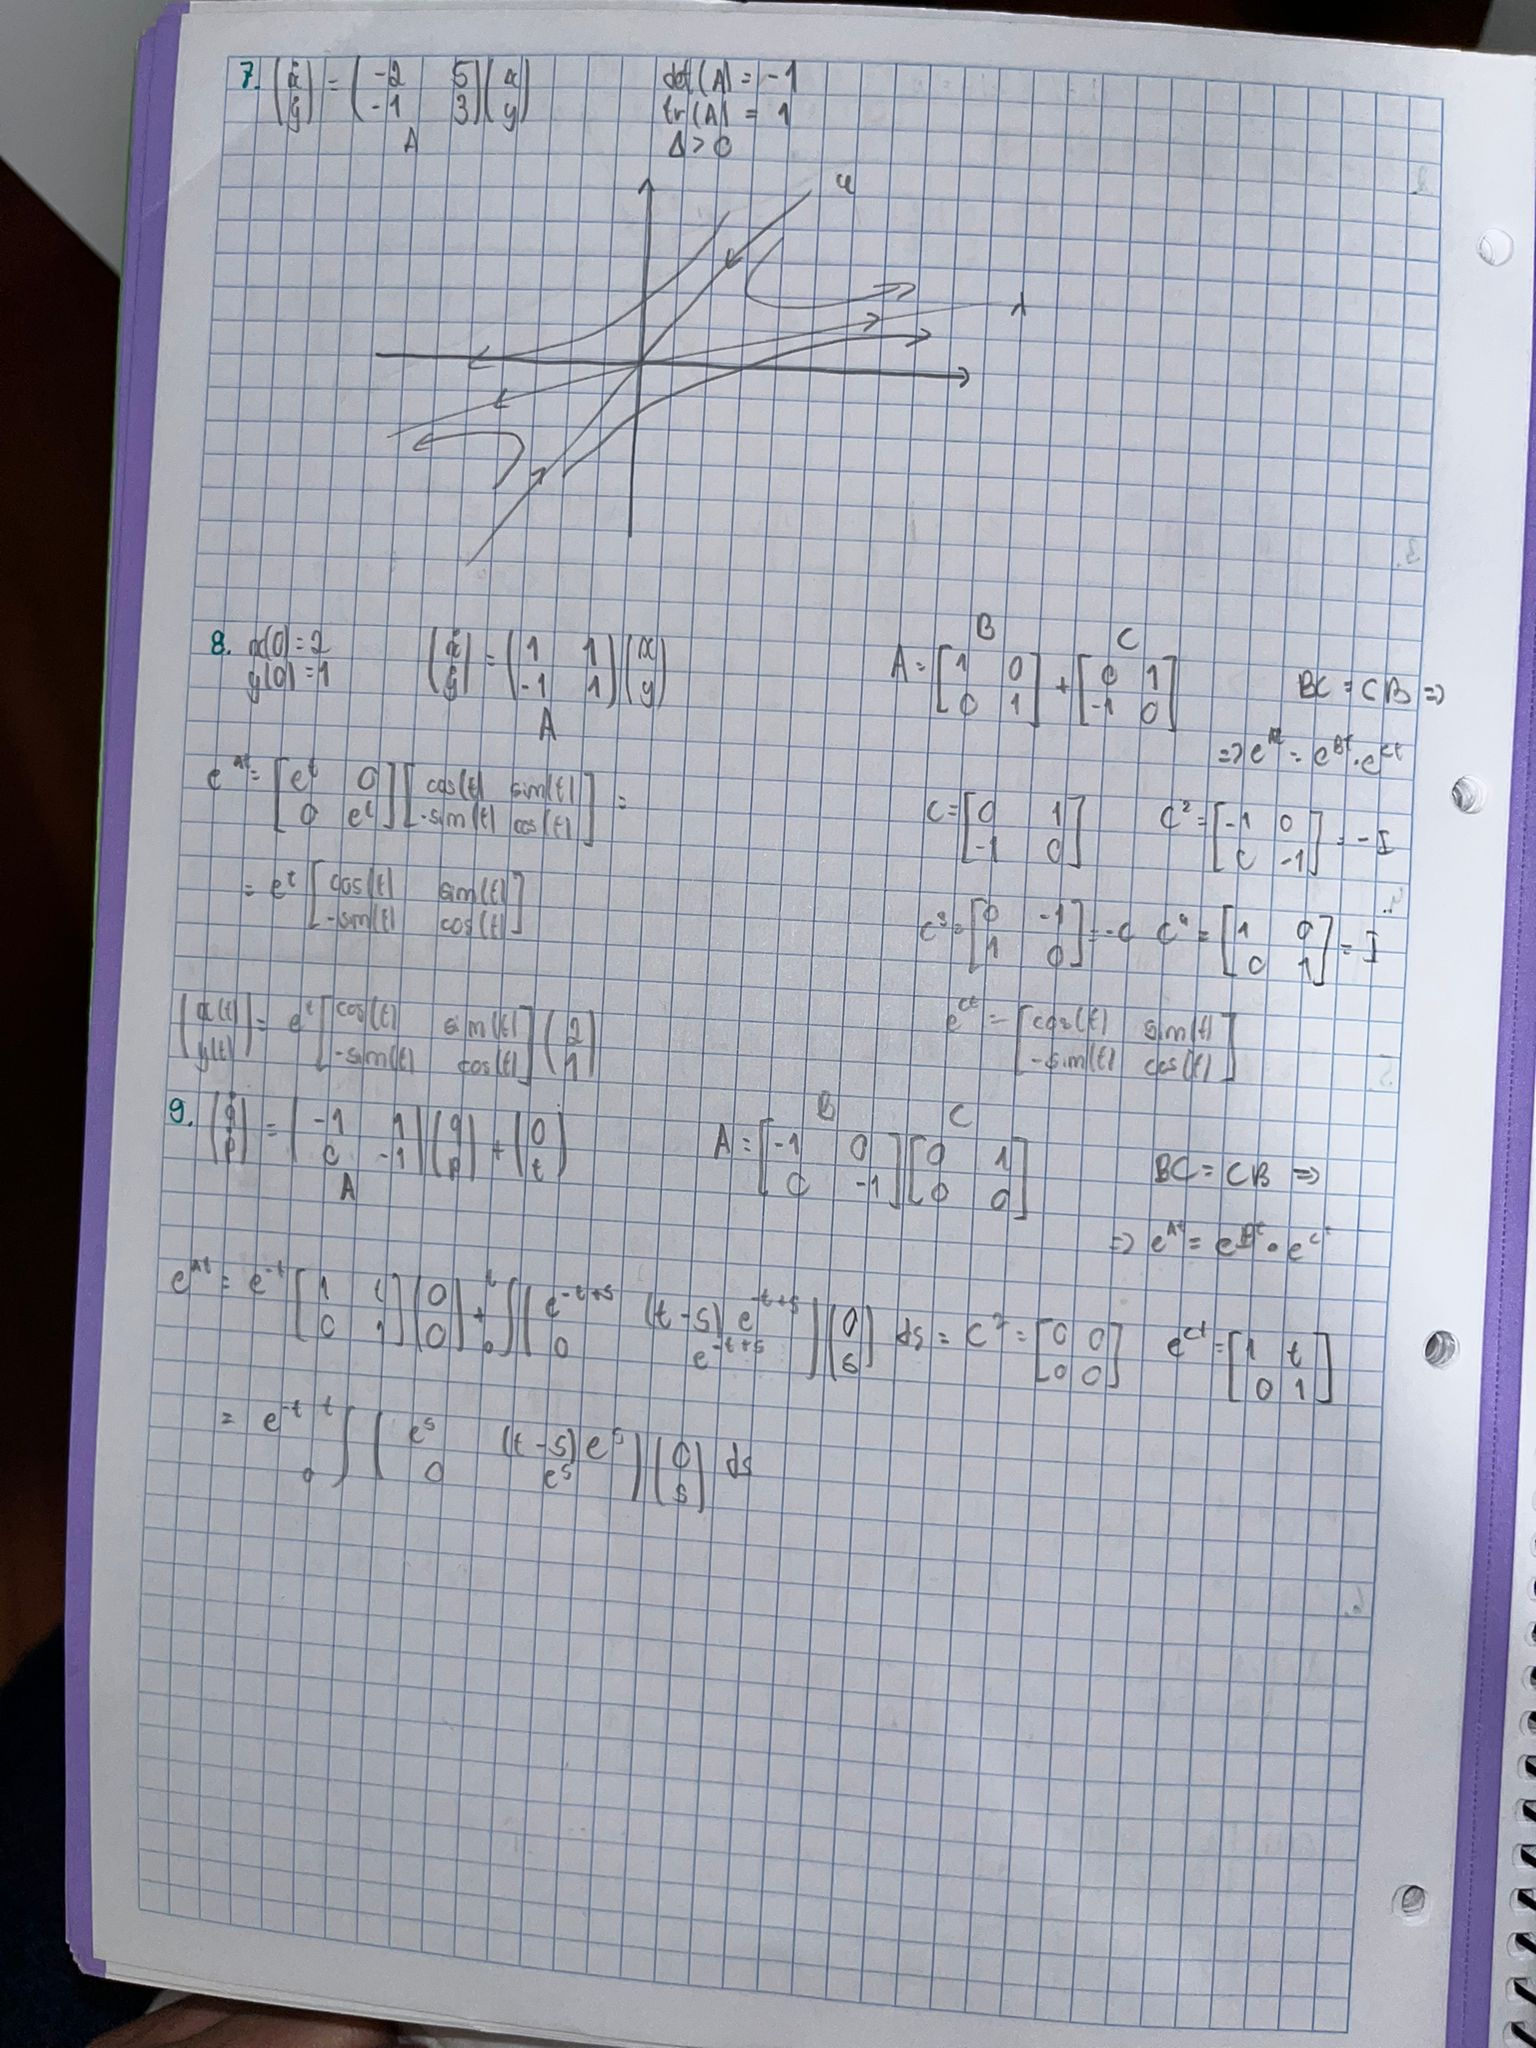 7. (ẋ ẏ) = (-2 5 -1 3)(x y) det(A) = -1
A tr(A) = 1
Δ > 0
y
x
8. x(0) = 2 (ẋ ẏ) = (1 1 -1 1)(x y) A = [1 0 0 1] + [0 1 -1 0] BC = CB =>
y(0) = 1 A B C
=> e^At = e^Bt · e^Ct
e^At = [e^t 0 0 e^t][cos(t) sin(t) -sin(t) cos(t)] =
C = [0 1 -1 0] C² = [-1 0 0 -1] = -I
= e^t [cos(t) sin(t) -sin(t) cos(t)]
C³ = [0 -1 1 0] = -C C⁴ = [1 0 0 1] = I
(x(t) y(t)) = e^t [cos(t) sin(t) -sin(t) cos(t)](2 1) e^Ct = [cos(t) sin(t) -sin(t) cos(t)]
9. (q̇ ṗ) = (-1 1 0 -1)(q p) + (0 t) A = [-1 0 0 -1][0 1 0 0] BC = CB =>
A B C
=> e^At = e^Bt · e^Ct
e^At = e^-t [1 t 0 1](0 0) + ₀∫^t (e^-t+s (t-s)e^-t+s 0 e^-t+s)(0 s) ds = C² = [0 0 0 0] e^Ct = [1 t 0 1]
= e^-t ₀∫^t (e^s (t-s)e^s 0 e^s)(0 s) ds